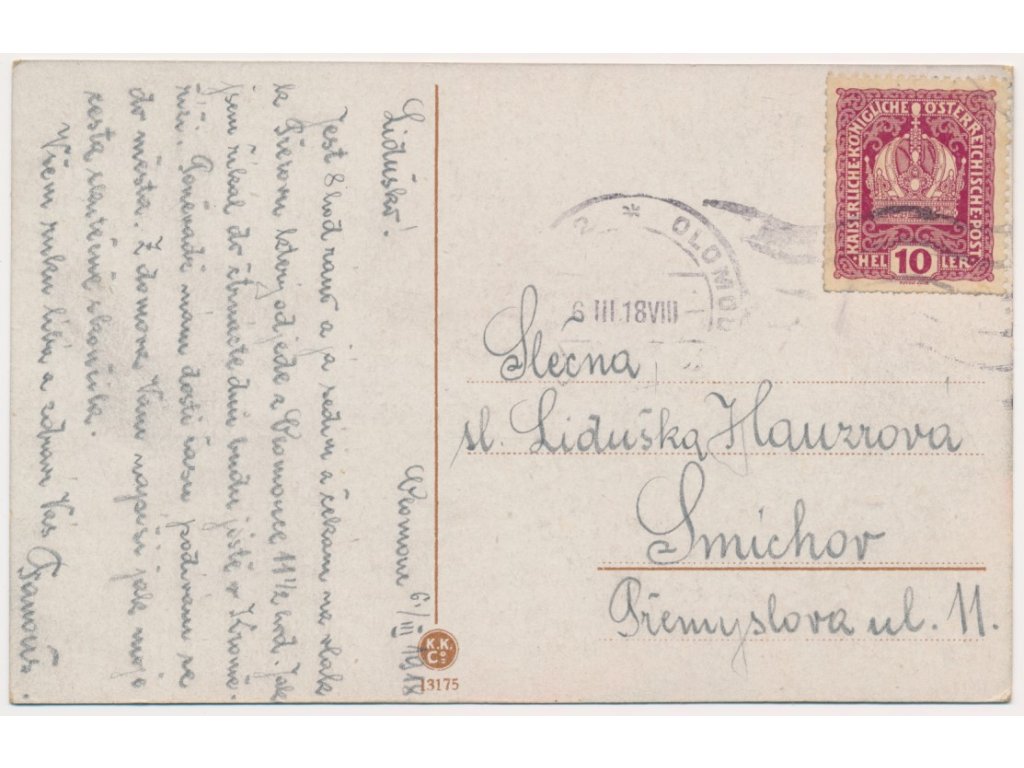 Liduško!
Olomouc 6./III 1918
Jest 8 hod ráno a já sedím a čekám na vlak
k Přerovu který odjede z Olomouce 11 1/2 hod. Jak
jsem říkal do čtrnácte dnů budu jistě v Kromě-
říži. Poněvadž mám dosti času podívám se
do města. Z domova Vám napíši jak moje
cesta skončila.
Všem ruku líbá a zdraví Vás
KAISERLICHE KÖNIGLICHE ÖSTERREICHISCHE POST
HEL 10 LER
2 * OLOMOUC
6 III 18 VIII
Slečna
sl. Liduška Hauzrova
Smíchov
Přemyslova ul. 11.
K.K.
Co
13175